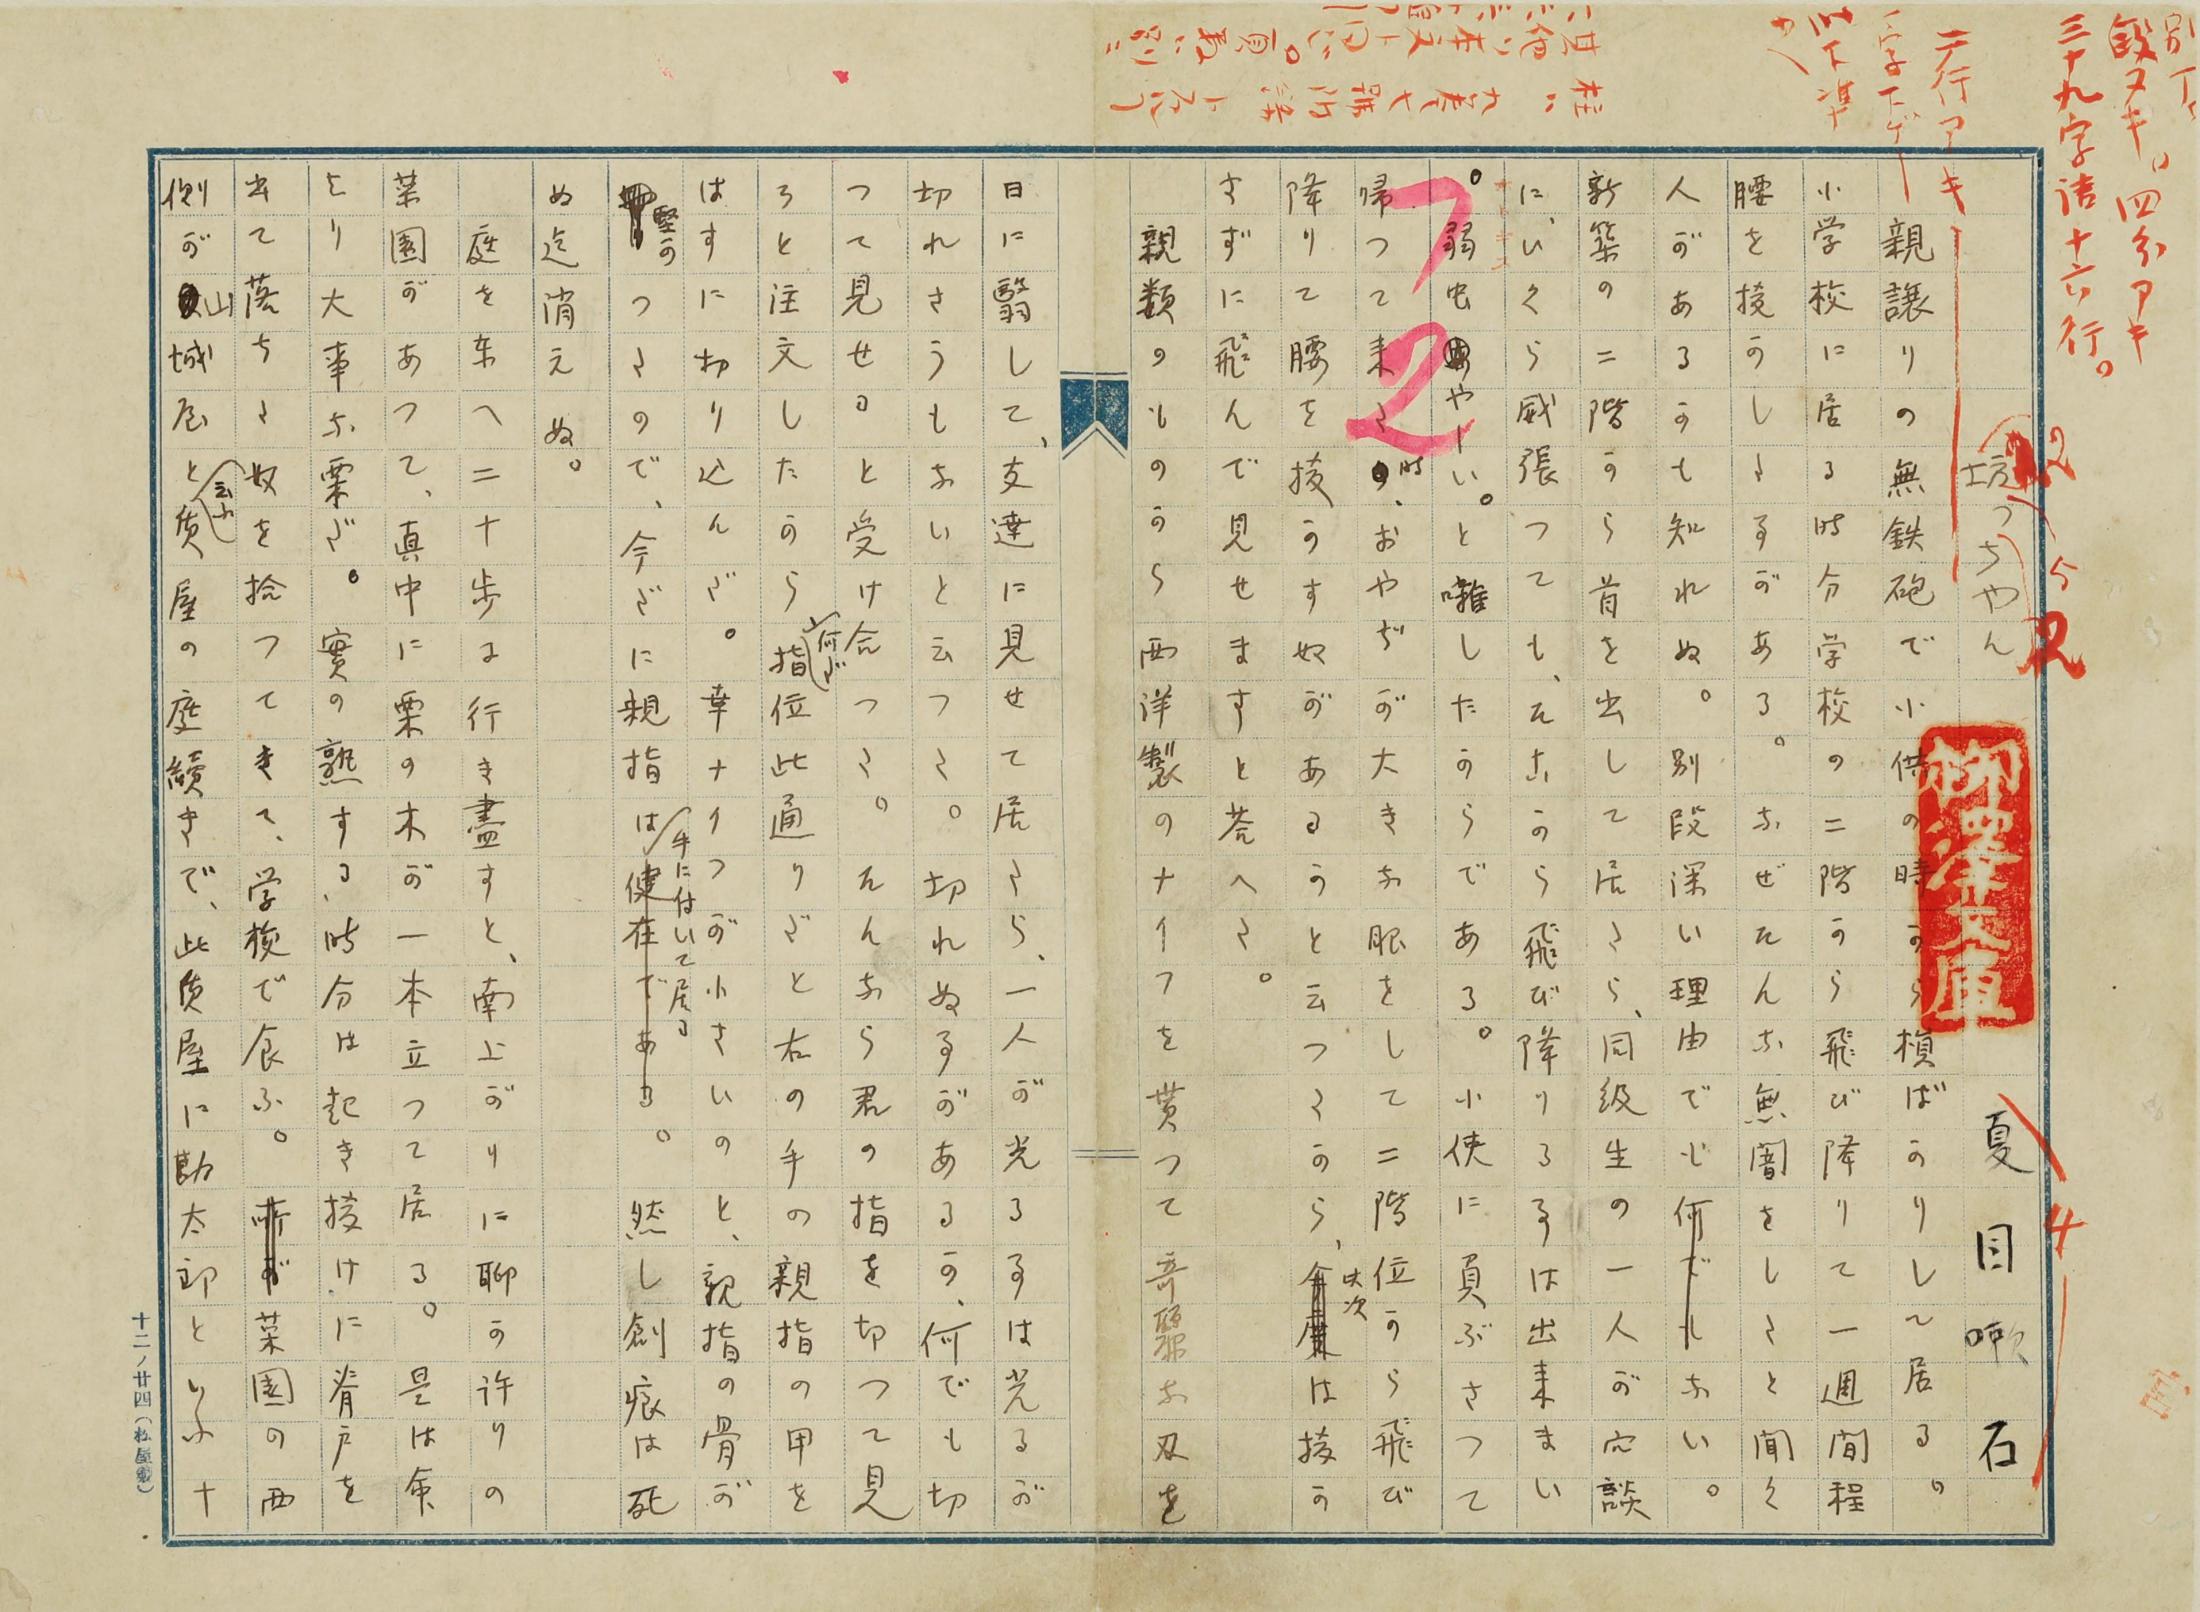 別行
段ヌキ。四分アキ
三十九字詰十六行。
二行アキ
一字下ゲ
以下準
坊っちやん
夏目漱石
親譲りの無鉄砲で小供の時から損ばかりして居る。
小学校に居る時分学校の二階から飛び降りて一週間程
腰を抜かした事がある。なぜそんな無闇をしたと聞く
人があるかも知れぬ。別段深い理由でもない。
新築の二階から首を出して居たら、同級生の一人が冗談
に、いくら威張つても、そこから飛び降りる事は出来まい
。弱虫やーい。と囃したからである。小使に負ぶさつて
帰つて来た時、おやぢが大きな眼をして二階位から飛び
降りて腰を抜かす奴があるかと云つたから、此次は抜か
さずに飛んで見せますと答へた。
親類のものから西洋製のナイフを貰つて奇麗な刃を
日に翳して、友達に見せて居たら、一人が光る事は光るが
切れさうもないと云つた。切れぬ事があるか、何でも切
つて見せると受け合つた。そんなら君の指を切つて見
ろと注文したから何だ指位此通りだと右の手の親指の甲を
はすに切り込んだ。幸ナイフが小さいのと、親指の骨が
堅かつたので、今だに親指は手に付いて居る。然し創痕は死
ぬ迄消えぬ。
庭を東へ二十歩に行き盡すと、南上がりに聊か許りの
菜園があつて、真中に栗の木が一本立つて居る。是は命
より大事な栗だ。實の熟する時分は起き抜けに脊戸を
出て落ちた奴を拾つてきて、学校で食ふ。菜園の西
側が山城屋と云ふ質屋の庭続きで、此質屋に勘太郎といふ十
柳澤文庫
十二ノ廿四(松屋製)